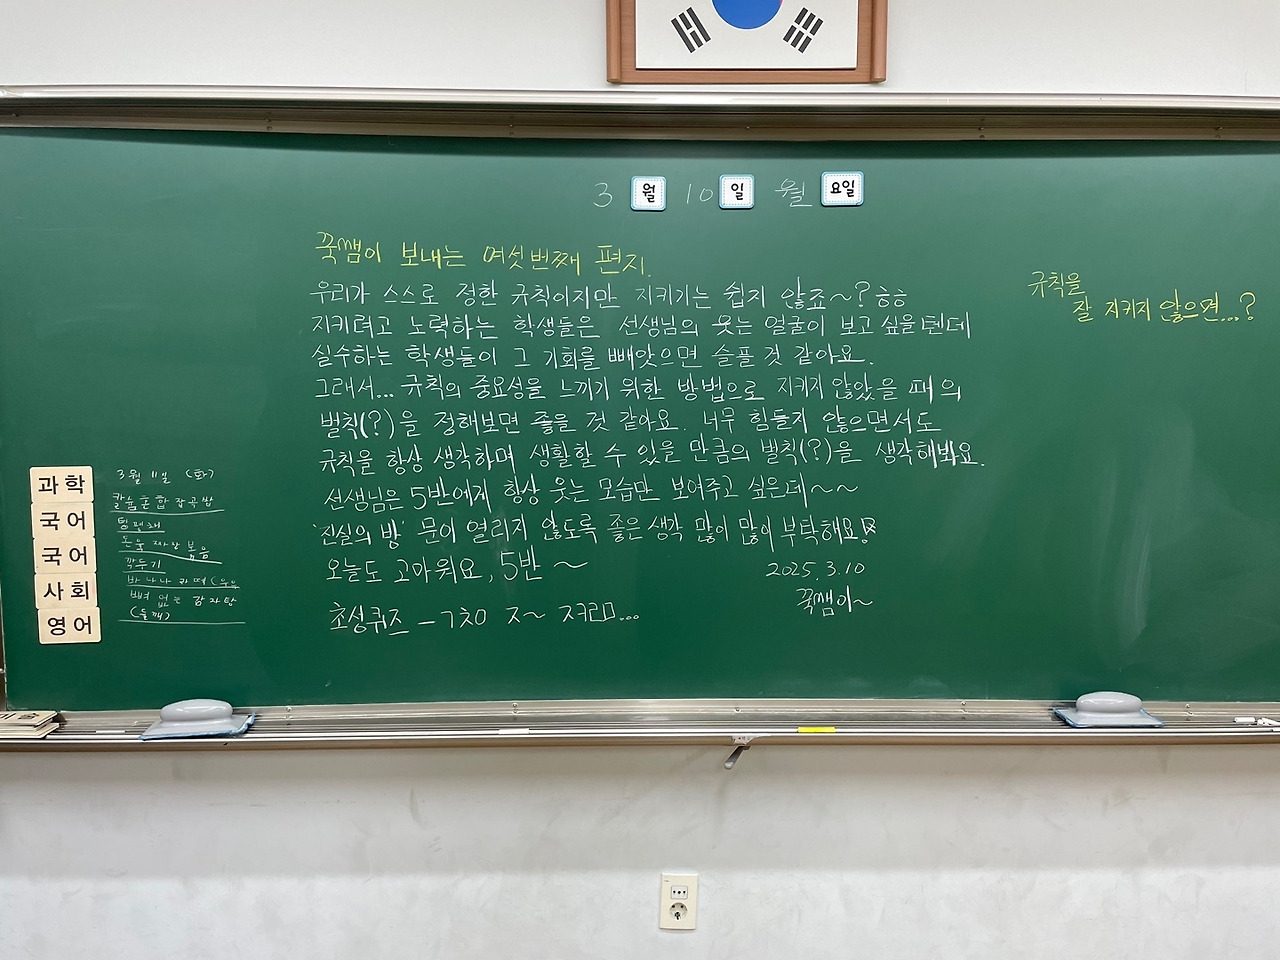 3 월 10 일 월 요일
꾹쌤이 보내는 여섯번째 편지.
우리가 스스로 정한 규칙이지만 지키기는 쉽지 않죠~? ㅎㅎ
지키려고 노력하는 학생들은 선생님의 웃는 얼굴이 보고 싶을텐데
실수하는 학생들이 그 기회를 빼앗으면 슬플 것 같아요.
그래서... 규칙의 중요성을 느끼기 위한 방법으로 지키지 않았을 때의
벌칙(?)을 정해보면 좋을 것 같아요. 너무 힘들지 않으면서도
규칙을 항상 생각하며 생활할 수 있을 만큼의 벌칙(?)을 생각해봐요.
선생님은 5반에게 항상 웃는 모습만 보여주고 싶은데~~
'진실의 방' 문이 열리지 않도록 좋은 생각 많이 많이 부탁해요!
오늘도 고마워요, 5반 ~
2025. 3. 10
꾹쌤이~
초성퀴즈 - ㄱㅊㅇ ㅈ~ ㅈㅋㄹㅁ...
규칙을
잘 지키지 않으면...?
과학
국어
국어
사회
영어
3월 11일 (화)
칼슘혼합잡곡밥
탕평채
돈육 짜장 볶음
깍두기
바나나
뼈 없는 감자탕
(들깨)